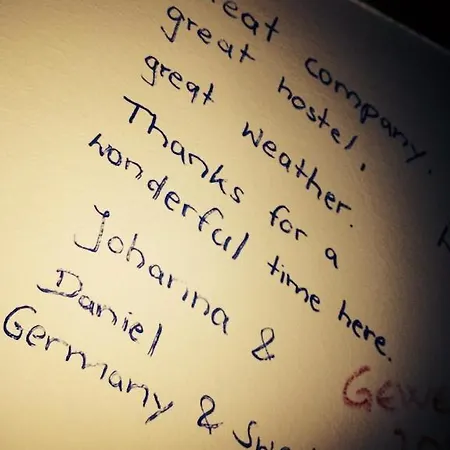 great company.
great hostel,
great weather.
Thanks for a
wonderful time here.
Johanna &
Daniel
Germany &